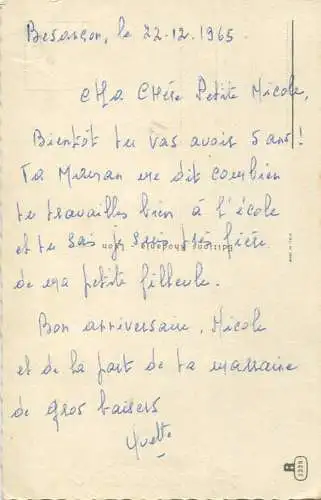 Besançon, le 22.12.1965.
Ma Chère Petite Nicole,
Bientôt tu vas avoir 5 ans!
Ta Maman me dit combien
tu travailles bien à l'école
et tu sais je suis très fière
de ma petite filleule.
Bon anniversaire, Nicole
et de la part de ta marraine
de gros baisers
Yvette